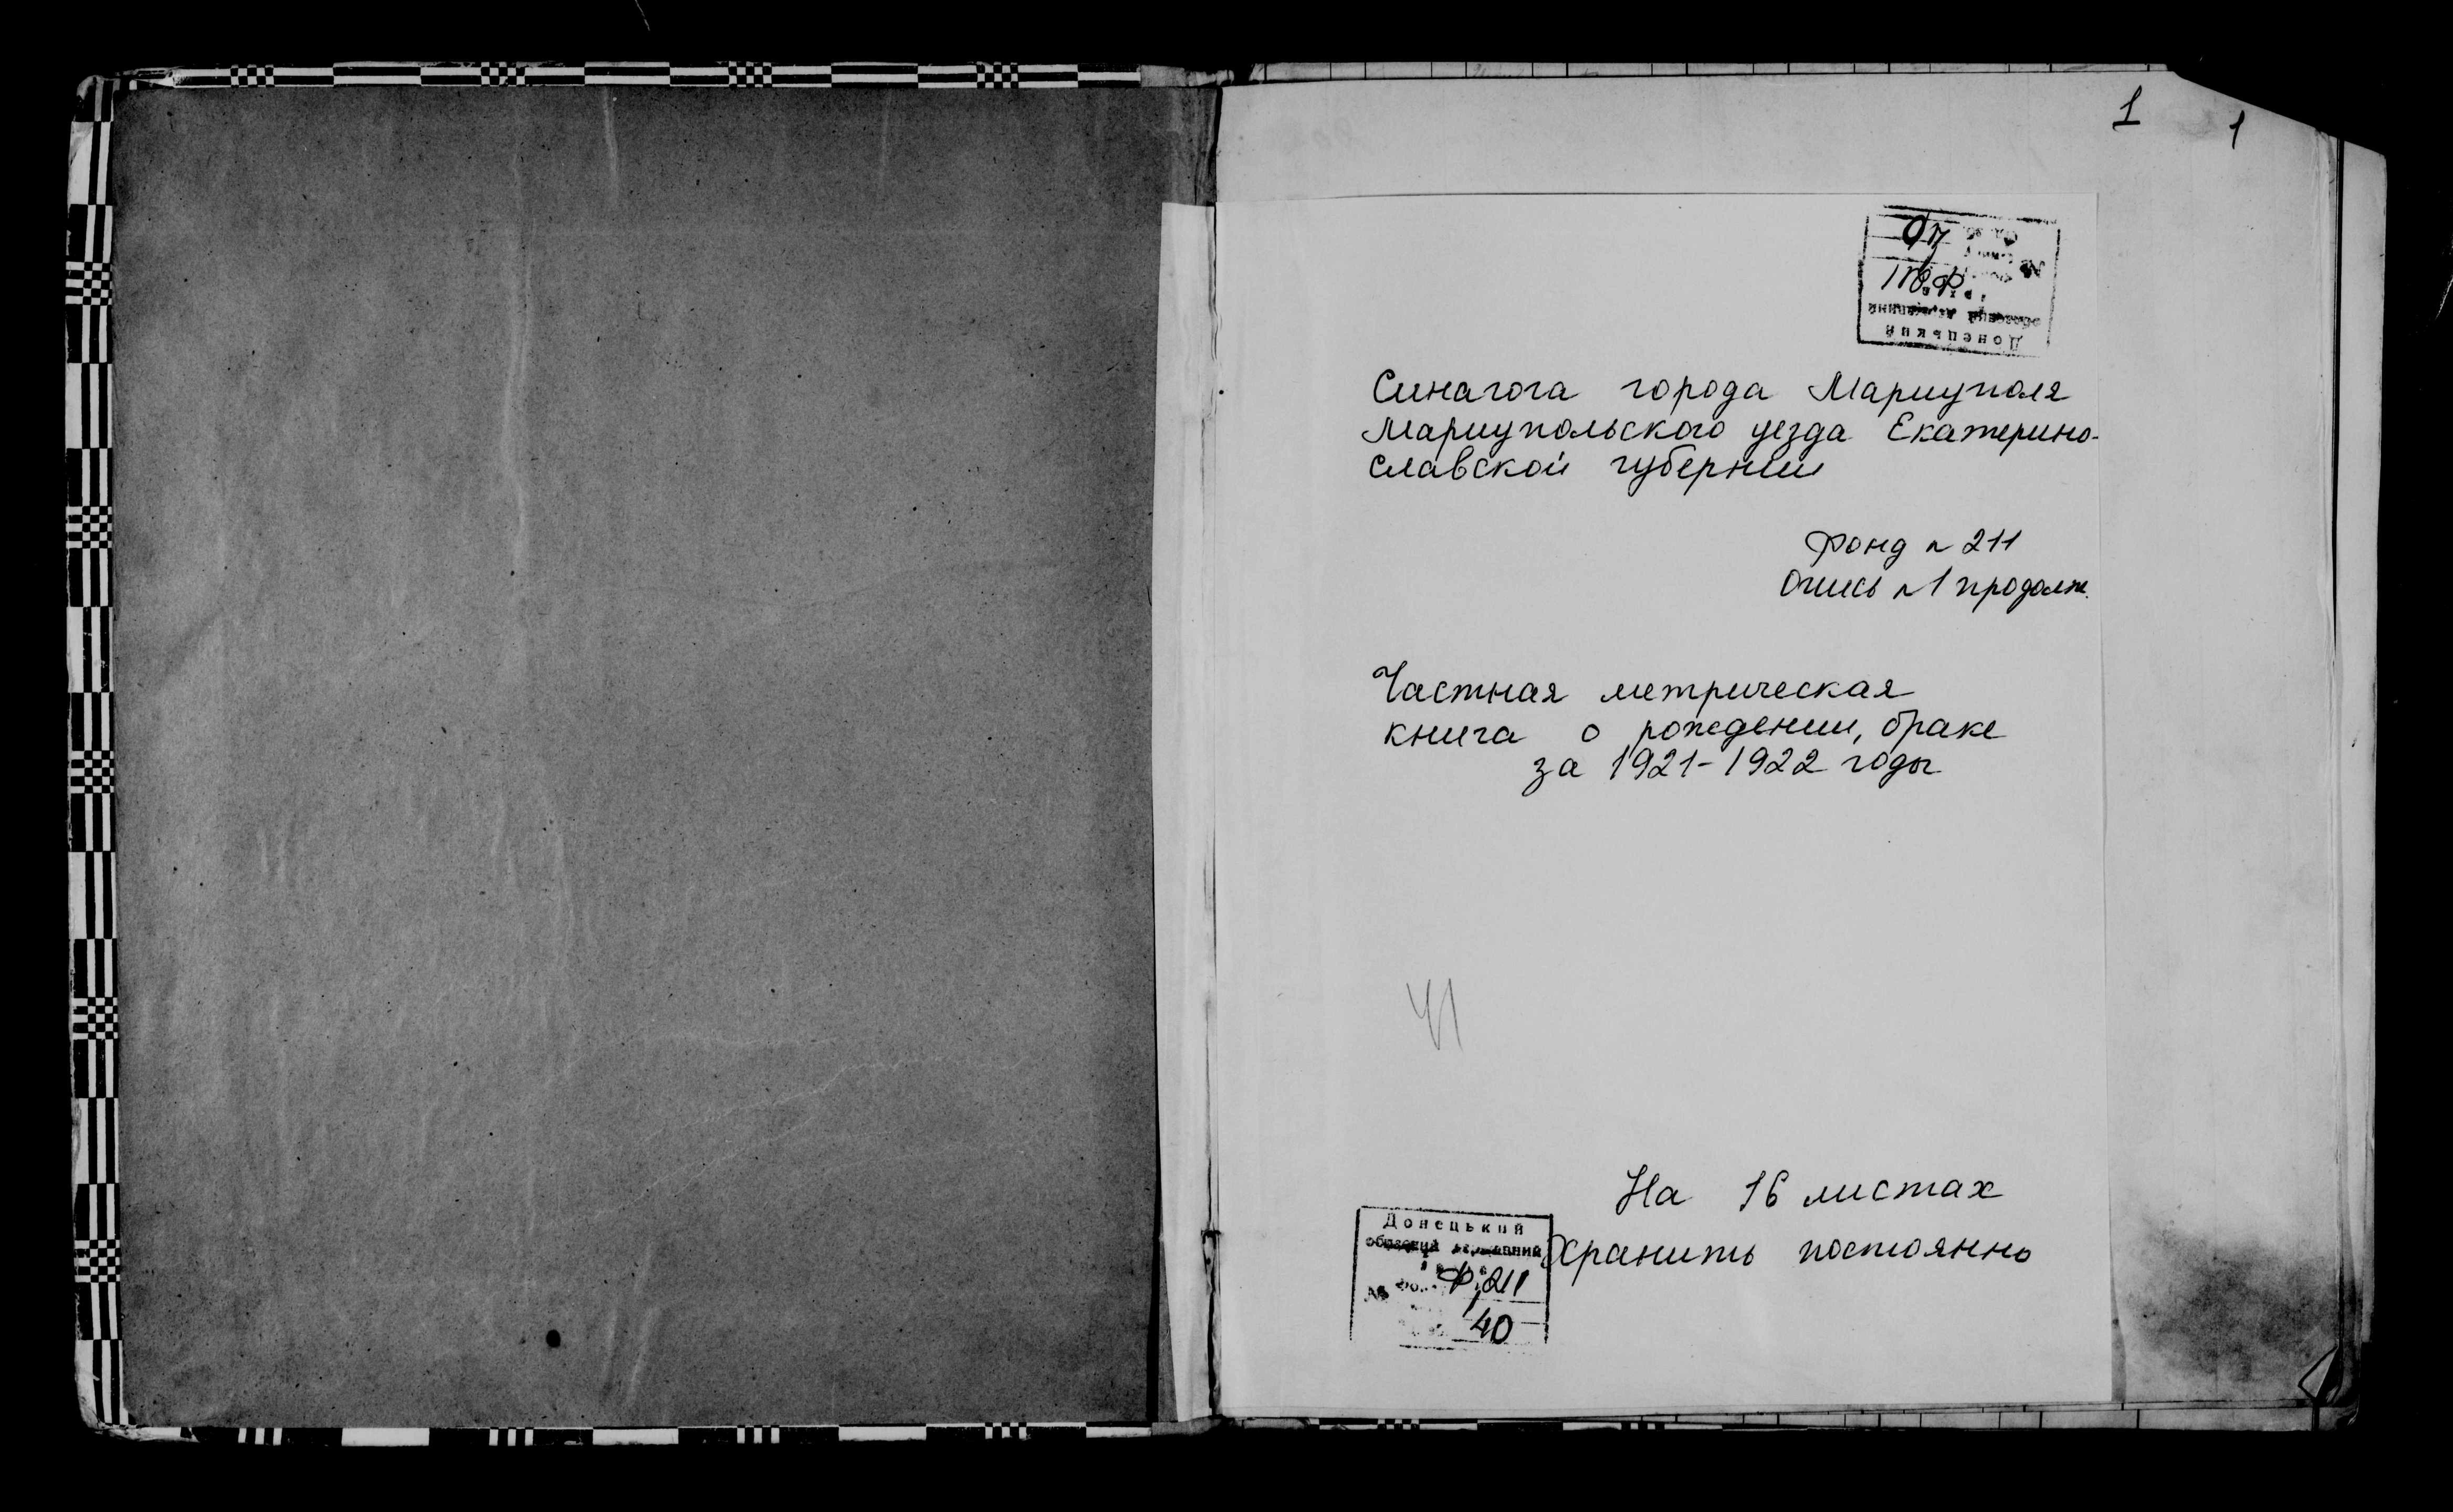 1
1
Синагога города Мариуполя
Мариупольского уезда Екатерино-
славской губернии
Фонд № 211
Опись № 1 продолж.
Частная метрическая
книга о рождении, браке
за 1921-1922 годы
41
На 16 листах
Хранить постоянно
Донецький
обласний державний
Ф. 211
40
Донецький
обласний державний